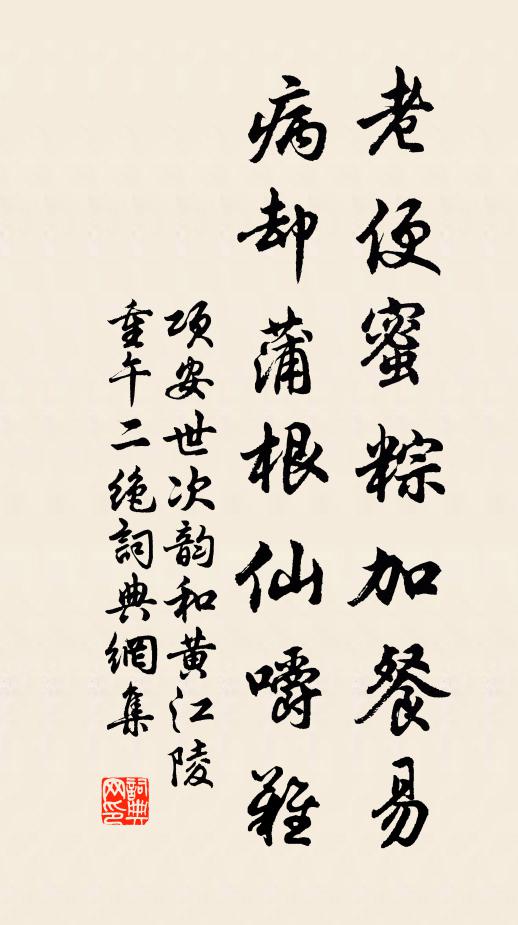 老便蜜粽加餐易
病却蒲根仙嚼難
项安世次韵和黄江陵
重午二绝詞典網集
詞典網印